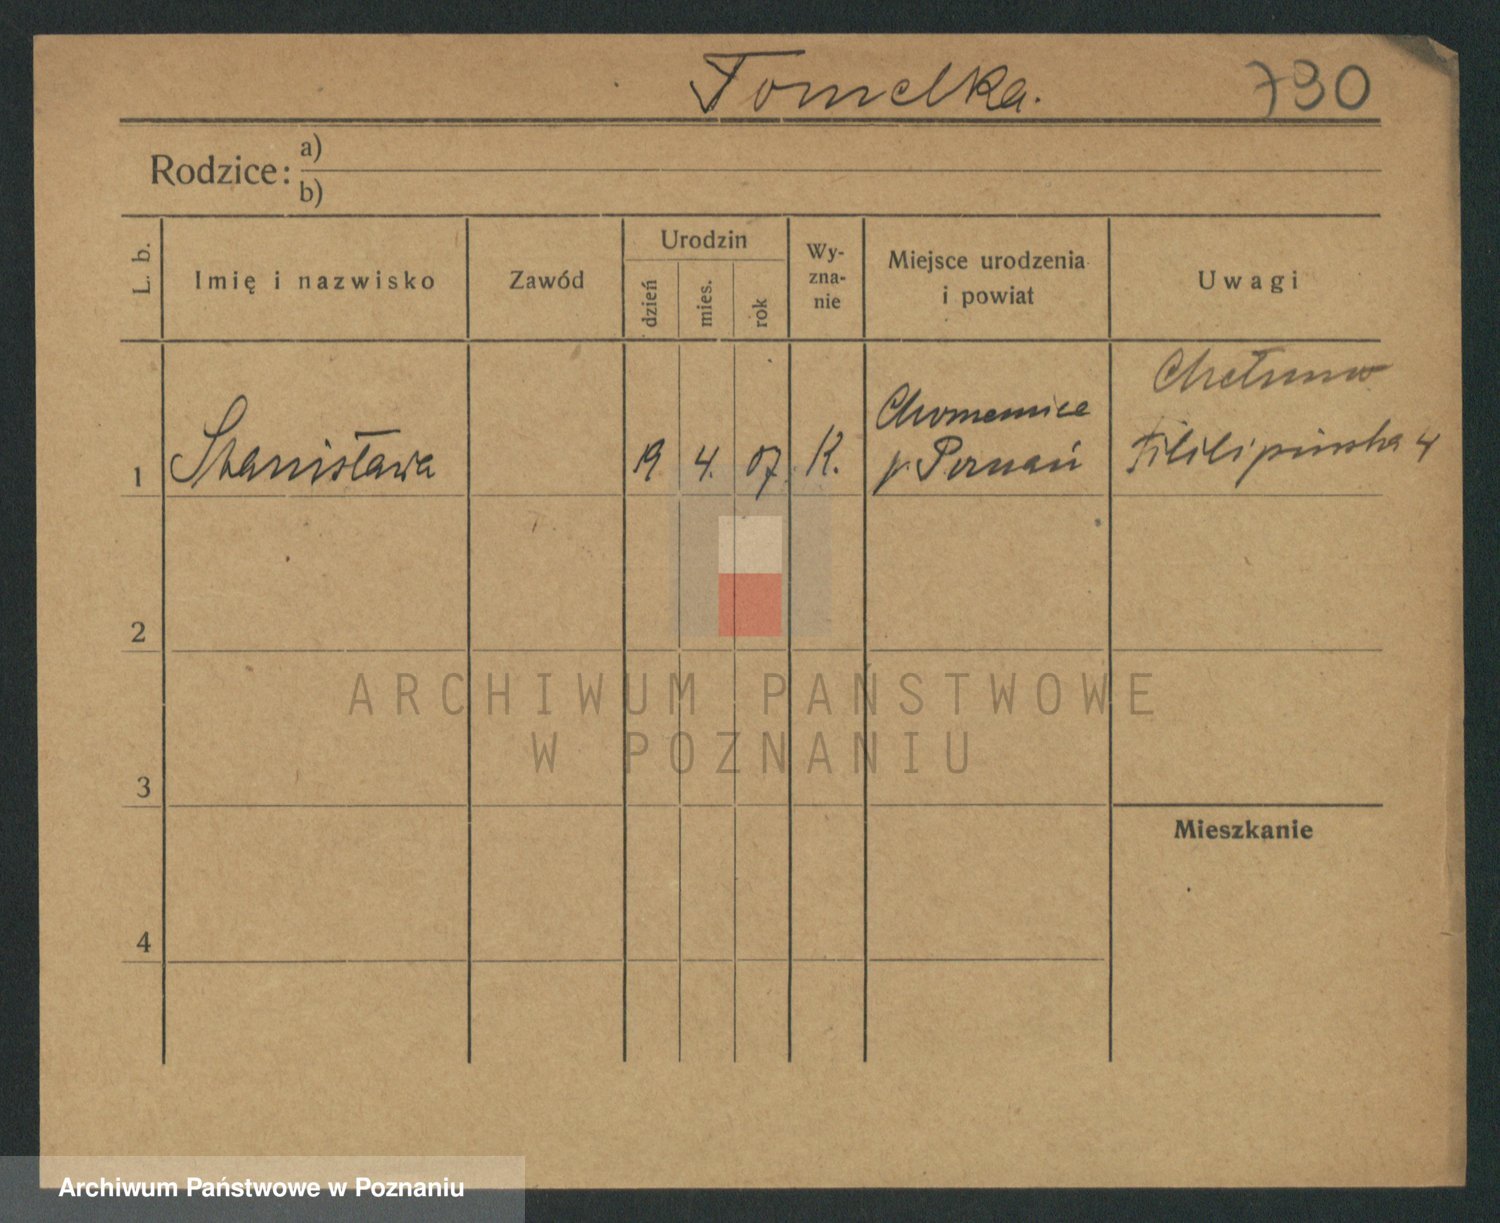 Tomelka. 790
Rodzice: a)
b)
L. b.
Imię i nazwisko
Zawód
Urodzin
dzień
mies.
rok
Wy-
zna-
nie
Miejsce urodzenia
i powiat
Uwagi
1 Stanisława 19 4. 07. K.
Chomencice
p. Poznań
Filipińska 4
2
3
4
Mieszkanie
ARCHIWUM PAŃSTWOWE
W POZNANIU
Archiwum Państwowe w Poznaniu